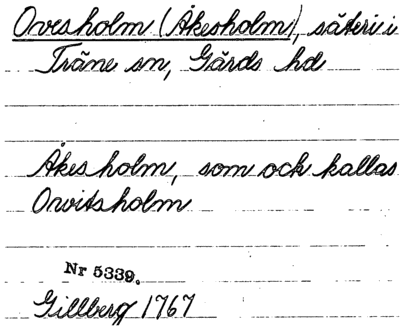 Ovesholm (Åkesholm), säteri i
Träne sn, Gärds hd
Åkes holm, som och kallas
Orvitsholm
Nr 5339.
Gillberg 1767